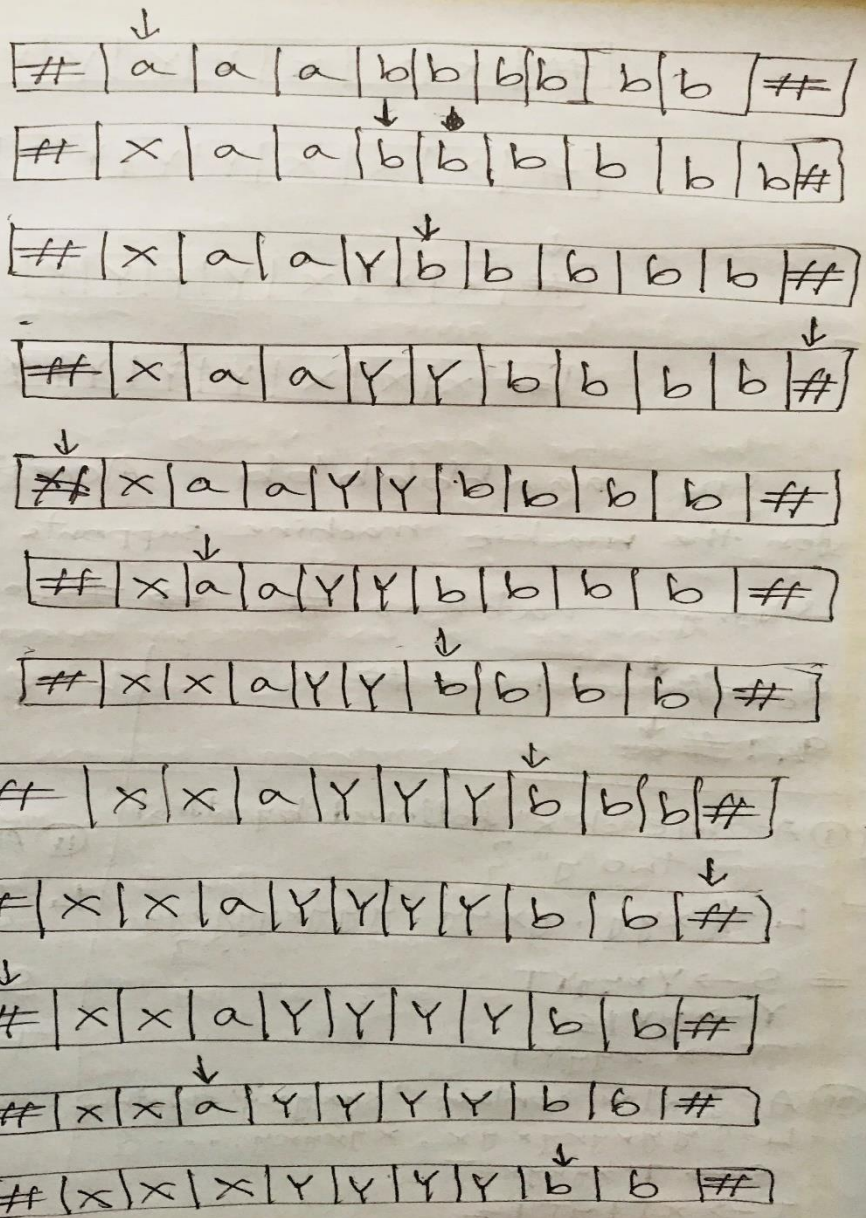 # | a | a | a | b | b | b | b | b | b | #
# | x | a | a | b | b | b | b | b | b | #
# | x | a | a | Y | b | b | b | b | b | #
# | x | a | a | Y | Y | b | b | b | b | #
# | x | a | a | Y | Y | b | b | b | b | #
# | x | a | a | Y | Y | b | b | b | b | #
# | x | x | a | Y | Y | b | b | b | b | #
# | x | x | a | Y | Y | Y | b | b | b | #
# | x | x | a | Y | Y | Y | Y | b | b | #
# | x | x | a | Y | Y | Y | Y | b | b | #
# | x | x | a | Y | Y | Y | Y | b | b | #
# | x | x | x | Y | Y | Y | Y | b | b | #